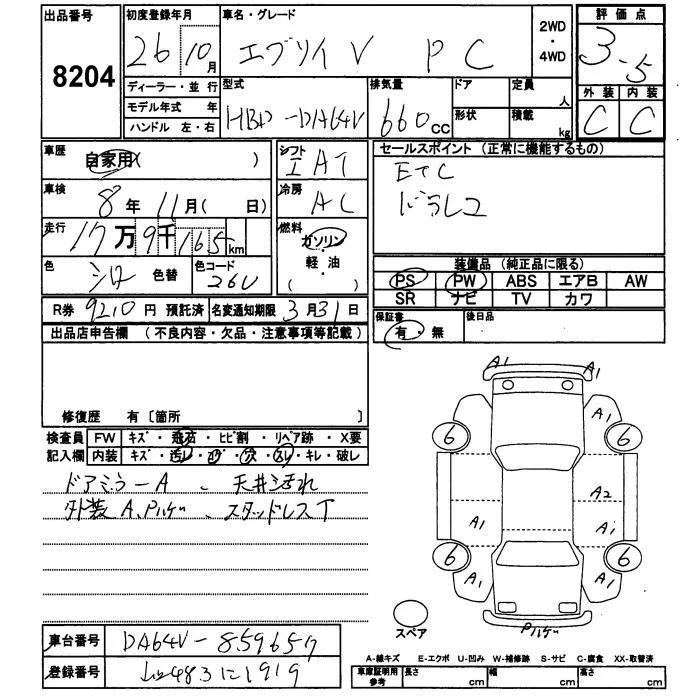 出品番号 8204
初度登録年月 26 10月
車名・グレード エブリイV PC
2WD・4WD
評価点 3.5
外装 C 内装 C
ディーラー・並行
モデル年式 年
ハンドル 左・右
型式 HBD-DA64V
排気量 660cc
ドア
形状
定員 人
積載 kg
車歴 自家用( )
車検 8年11月( 日)
走行 17万9千165km
色 シロ 色替
色コード 26U
シフト IAT
冷房 AC
燃料 ガソリン
軽・油
( )
セールスポイント (正常に機能するもの)
ETC
ドラレコ
装備品 (純正品に限る)
PS PW ABS エアB AW
SR ナビ TV カワ
R券 9210円 預託済 名変通知期限 3月31日
保証書 有・無
後日品
出品店申告欄 (不良内容・欠品・注意事項等記載)
修復歴 有〔箇所 〕
検査員 FW キズ・飛石・ヒビ割・リペア跡・X要
記入欄 内装 キズ・汚レ・コゲ・穴・スレ・キレ・破レ
ドアミラーA 、 天井汚れ
外装A、Pハゲ 、 スタッドレスT
A1 A1
A1
6 6
A1 A2
A1
6 6
A1 A1
Pハゲ
スペア
車台番号 DA64V-859657
A-線キズ E-エクボ U-凹み W-補修跡 S-サビ C-腐食 XX-取替済
登録番号 483 に 1919
車庫証明用参考 長さ cm 幅 cm 高さ cm